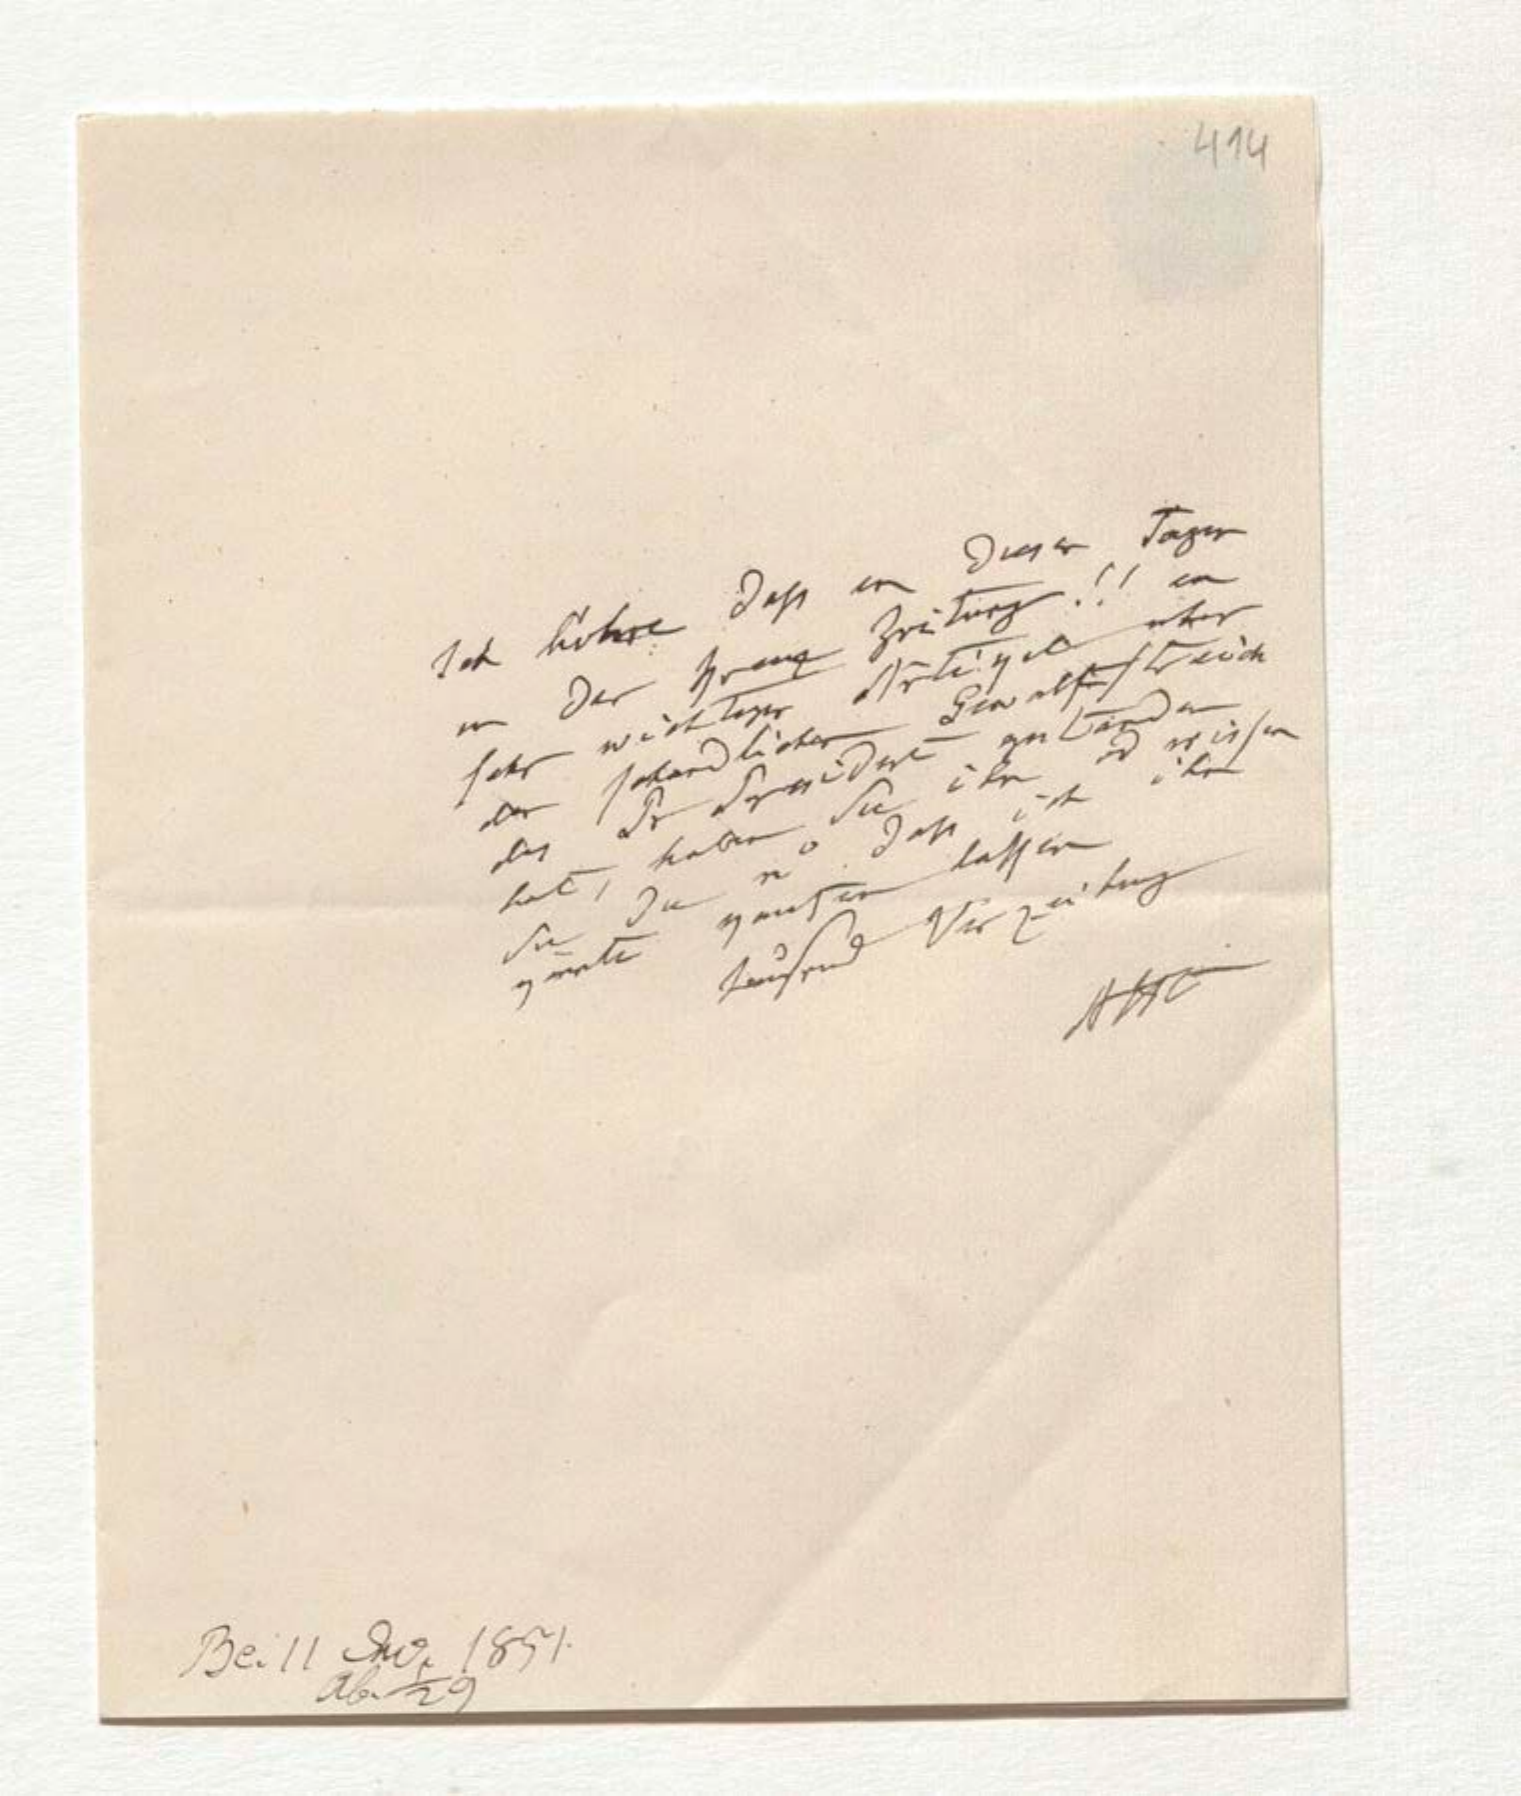 414
Ich höhre daß in diesen Tagen
in der Kreuz Zeitung!! ein
sehr wichtiger Artikel über
den schandlichen Gewaltstreich
des Pr Präsident gestanden
hat, haben Sie ihn od wissen
Sie die no daß ich ihn
könnte kaufen lassen
tausend Verzeihung
AHt
Bei 11 1851.
29